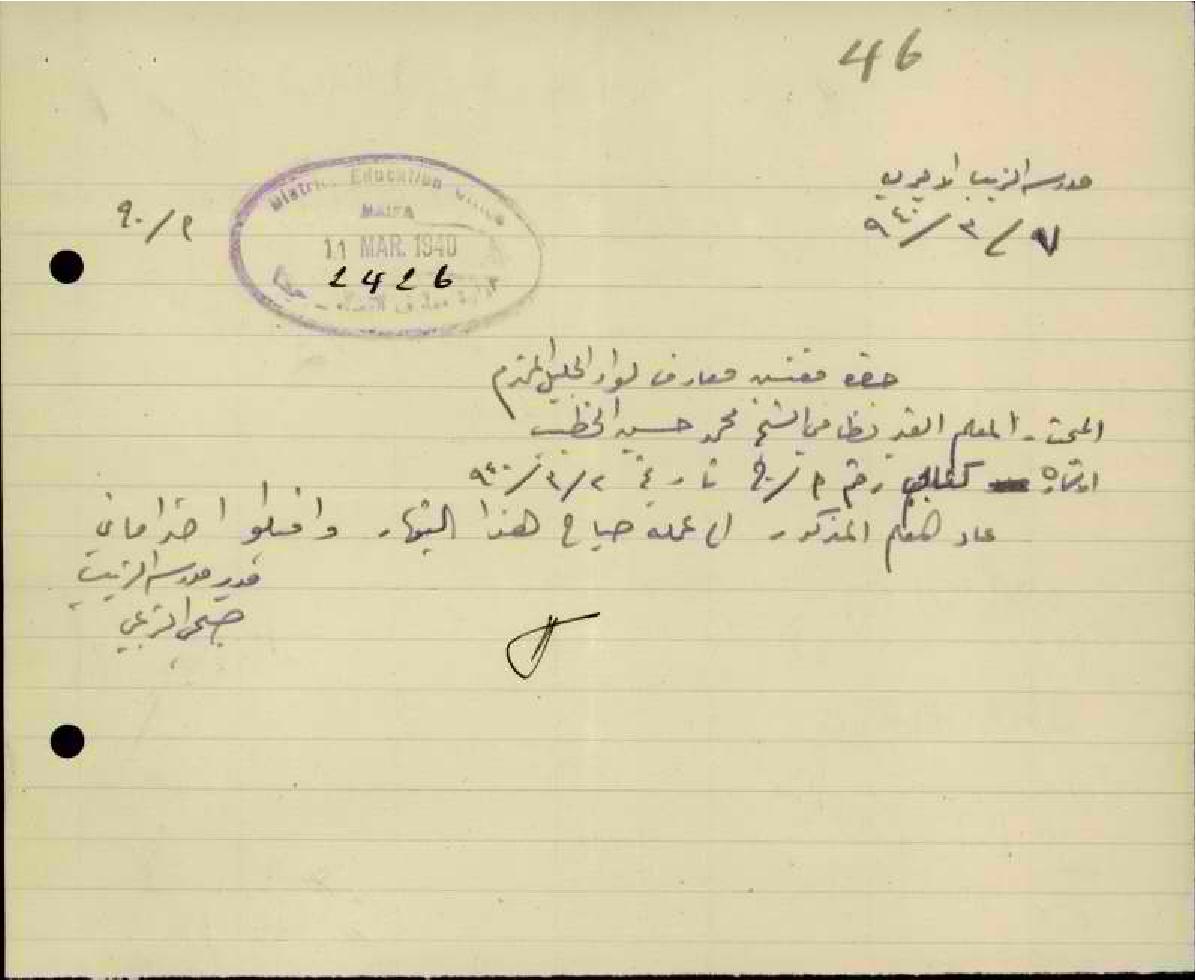 46
مدرسة الزيب الاميرية
٧/٣/٩٤٠
م/٩٠
District Education Office
HAIFA
11 MAR. 1940
2426
حضرة مفتش معارف لواء الجليل المحترم
المبحث - المعلم الغير نظامي الشيخ محمد حسين الخطيب
كتابي رقم م/ تاريخ ٢/٣/٩٤٠
عاد المعلم المذكور الى عمله صباح هذا النهار واقبلوا احتراماتي
مدير مدرسة الزيب
صبحي